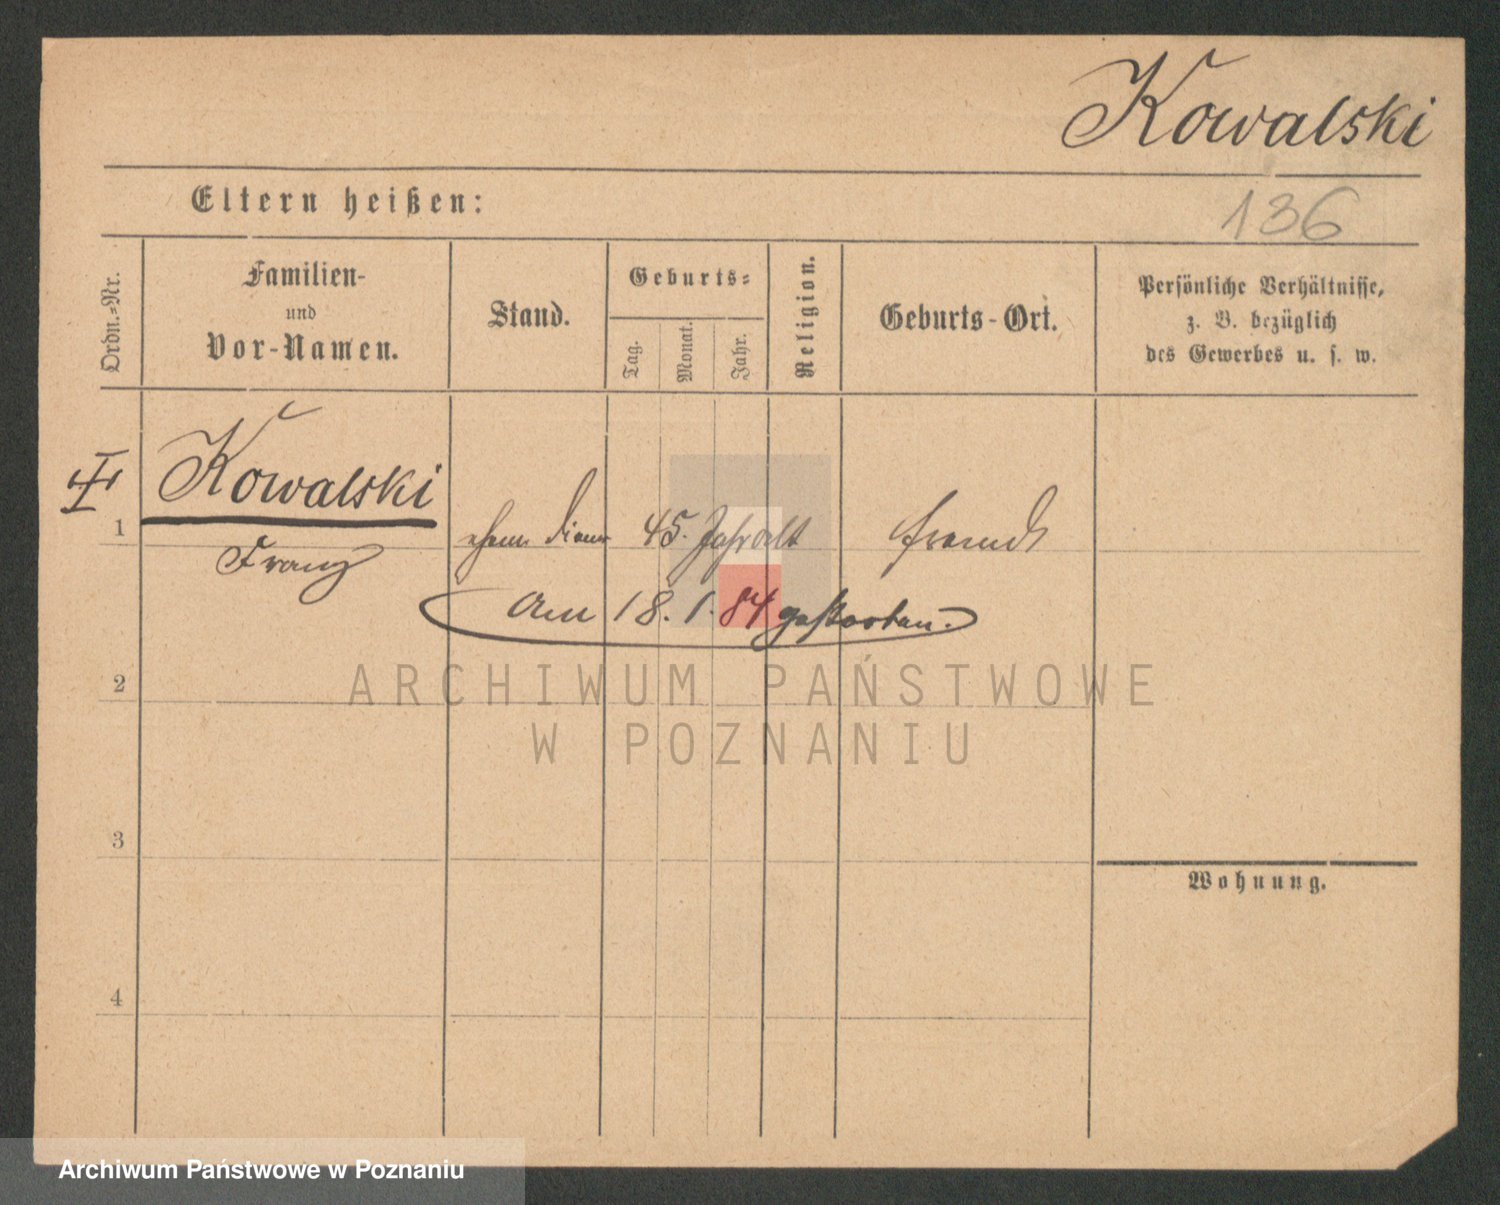 Kowalski
Eltern heißen:
136
Ordn.=Nr.
Familien-
und
Vor-Namen.
Stand.
Geburts=
Tag.
Monat.
Jahr.
Religion.
Geburts-Ort.
Persönliche Verhältnisse,
z. B. bezüglich
des Gewerbes u. s. w.
Kowalski
1
Franz
45. Jahr alt
fremdt
am 18. 1. 84 gestorben.
ARCHIWUM PAŃSTWOWE
2
W POZNANIU
3
Wohnung.
4
Archiwum Państwowe w Poznaniu